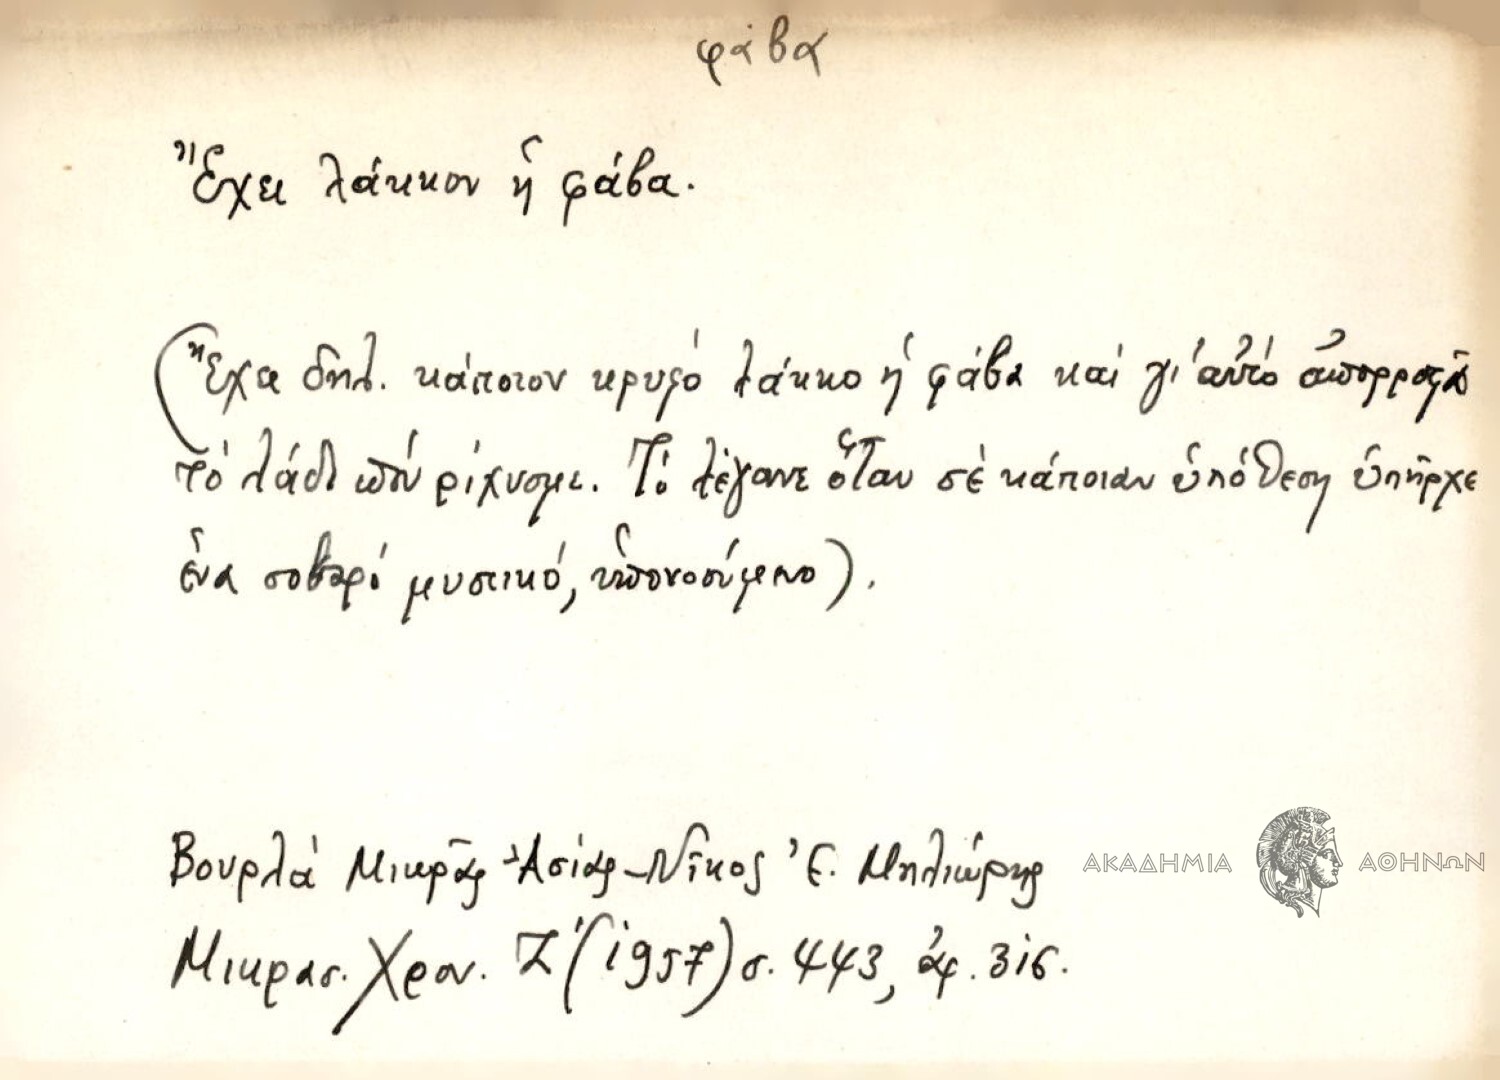 φάβα
Ἔχει λάκκον ἡ φάβα.
(Ἔχει δηλ. κάποιον κρυφό λάκκο ἡ φάβα καί γι' αὐτό ἀπορροφᾶ
τό λάδι πού ρίχνομε. Τό λέγανε ὅταν σέ κάποιαν ὑπόθεση ὑπῆρχε
ἕνα σοβαρό μυστικό, ὑπονοούμενο).
Βουρλά Μικρᾶς Ἀσίας - Νῖκος Ἐ. Μηλιώρης
Μικρασ. Χρον. Ζ' (1957) σ. 443, ἀρ. 316.
ΑΚΑΔΗΜΙΑ ΑΘΗΝΩΝ